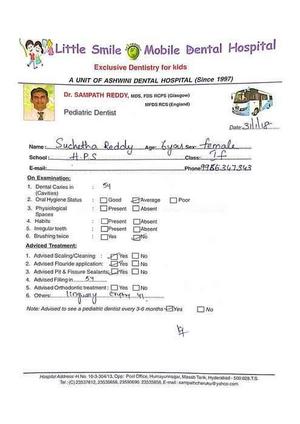 Little Smile Mobile Dental Hospital
Exclusive Dentistry for kids
A UNIT OF ASHWINI DENTAL HOSPITAL (Since 1997)
Dr. SAMPATH REDDY, MDS, FDS RCPS (Glasgow)
MFDS RCS (England)
Pediatric Dentist
Date: 31/1/18
Name: Suchetha Reddy Age: 6 years Sex: female
School: H.P.S Class: If
E-mail: Phone 9986347343
On Examination:
1. Dental Caries in : 54
(Cavities)
2. Oral Hygiene Status : Good Average Poor
3. Physiological : Present Absent
Spaces
4. Habits : Present Absent
5. Irregular teeth : Present Absent
6. Brushing twice : Yes No
Adviced Treatment:
1. Advised Scaling/Cleaning : Yes No
2. Advised Flouride application: Yes No
3. Advised Pit & Fissure Sealants: Yes No
4. Advised Filling in 54
5. Advised Orthodontic treatment : Yes No
6. Others:
Note: Advised to see a pediatric dentist every 3-6 months Yes No
Hospital Address-H.No. 10-3-304/13, Opp: Post Office, Humayunnagar, Masab Tank, Hyderabad - 500 028.T.S.